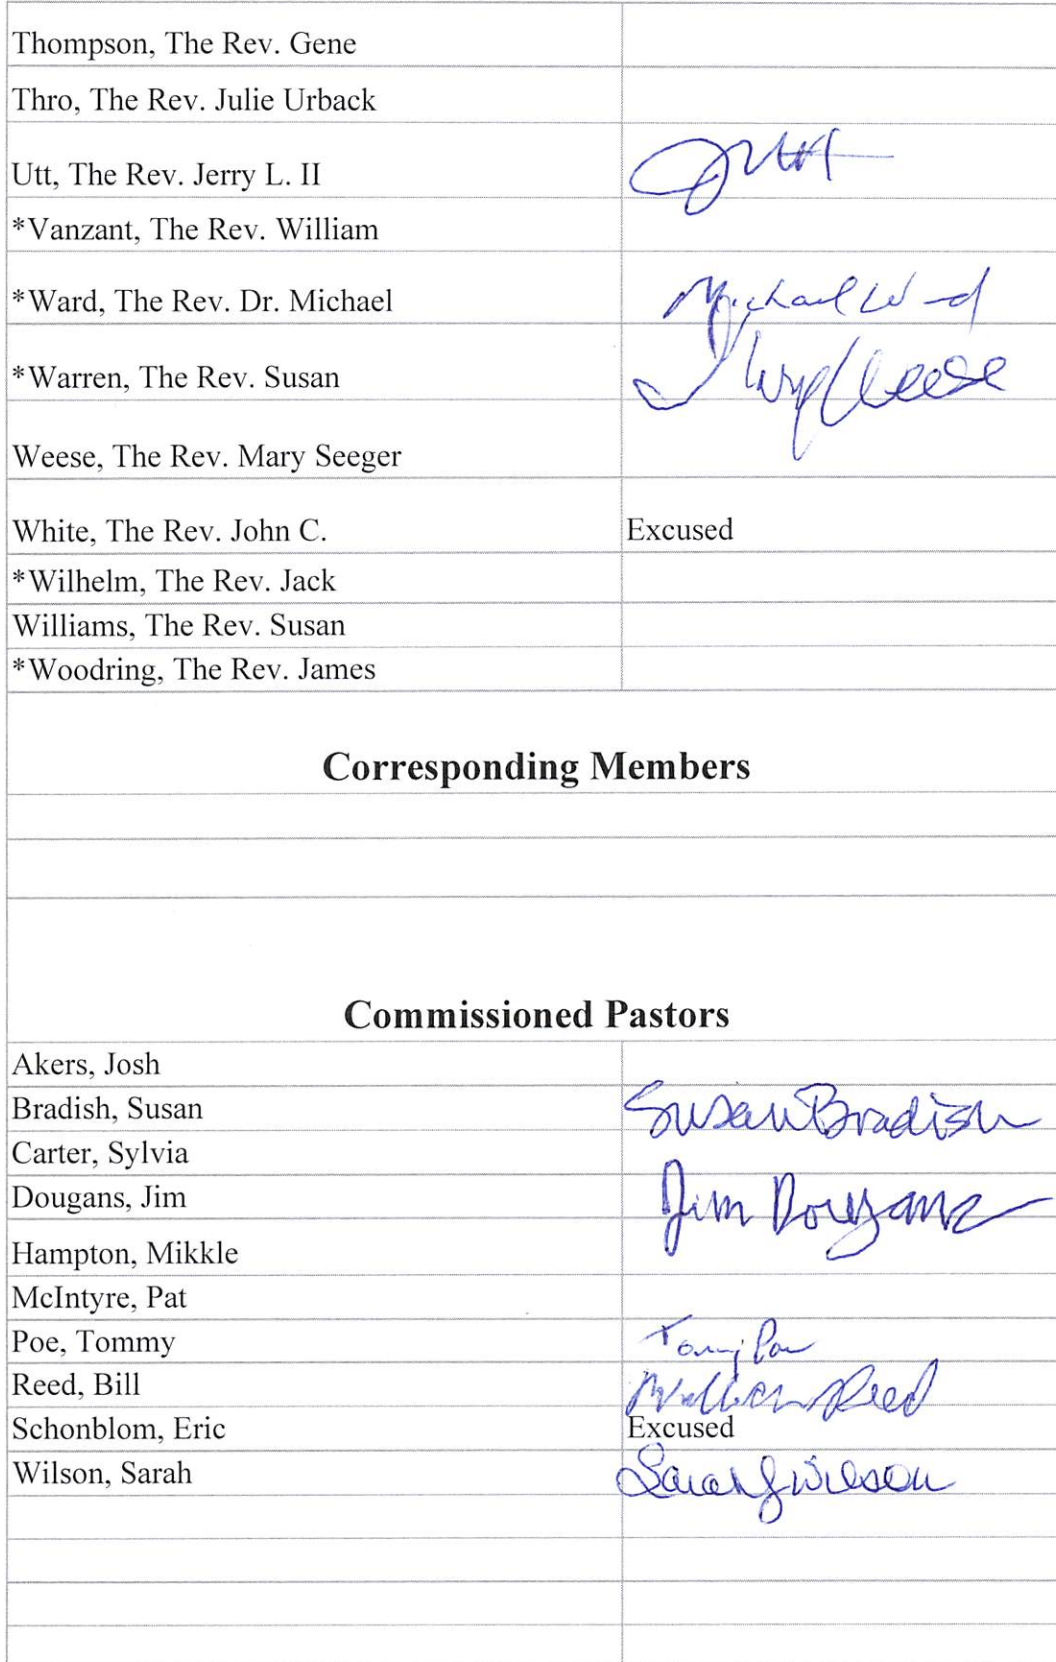 Thompson, The Rev. Gene
Thro, The Rev. Julie Urback
Utt, The Rev. Jerry L. II
*Vanzant, The Rev. William
*Ward, The Rev. Dr. Michael Michael Ward
*Warren, The Rev. Susan
Weese, The Rev. Mary Seeger Weese
White, The Rev. John C. Excused
*Wilhelm, The Rev. Jack
Williams, The Rev. Susan
*Woodring, The Rev. James
Corresponding Members
Commissioned Pastors
Akers, Josh
Bradish, Susan Susan Bradish
Carter, Sylvia
Dougans, Jim Jim Dougans
Hampton, Mikkle
McIntyre, Pat
Poe, Tommy Tommy Poe
Reed, Bill William Reed
Schonblom, Eric Excused
Wilson, Sarah Sarah J Wilson